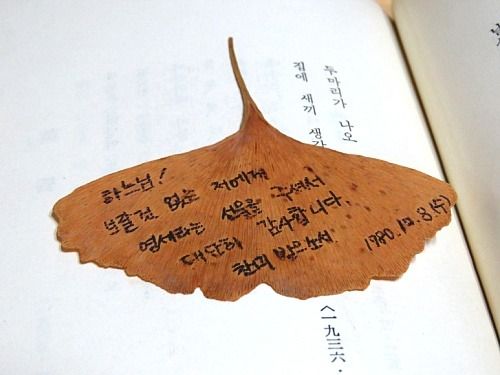 하느님!
보잘것 없는 저에게
영세라는 선물을 주셔서
대단히 감사합니다.
찬미 받으소서
1980. 10. 8 (수)
두마리가 나오
집에 새끼
〈一九三六·